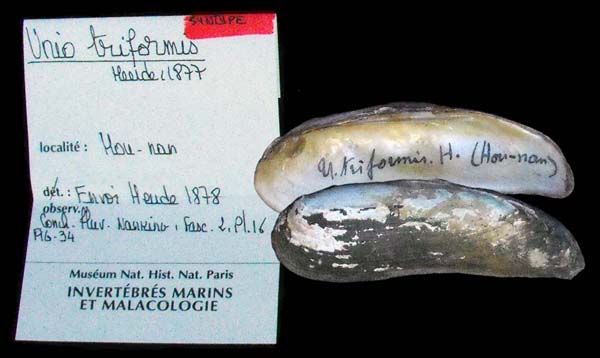 SYNTYPE
Unio triformis
Heude, 1877
localité : Hou-nan
dét. : Envoi Heude 1878
observ.
Conch. Fluv. Nanking, Fasc. 2, Pl. 16
FIG. 34
Muséum Nat. Hist. Nat. Paris
INVERTÉBRÉS MARINS
ET MALACOLOGIE
U. triformis. H. (Hou-nan)